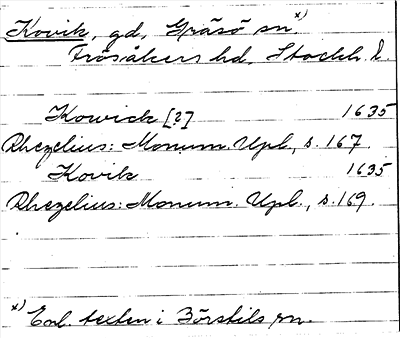 Kovik, gd, Gräsö sn. x)
Frösåkers hd, Stockh. l.
Kowick [?] 1635
Rhezelius: Monum. Upl., s. 167.
Kovik 1635
Rhezelius: Monum. Upl., s. 169.
x) Enl. texten i Börstils sn.